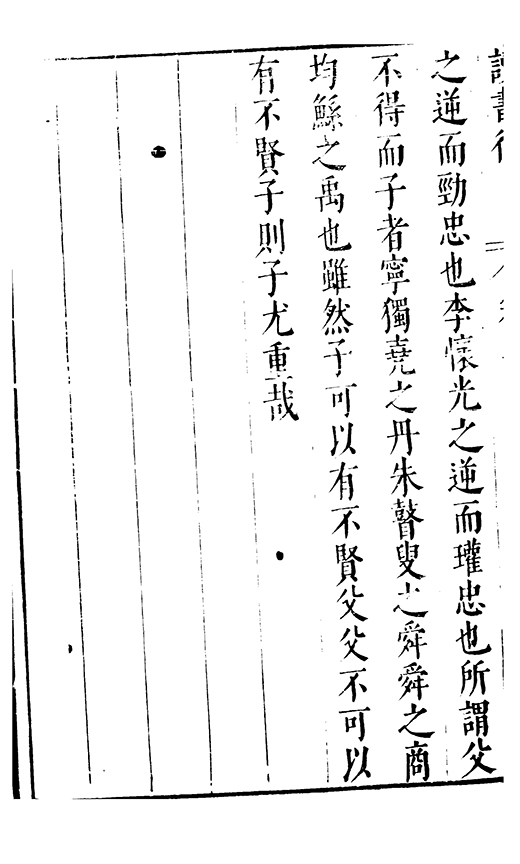 讀書後
之逆而勁忠也李懷光之逆而瓘忠也所謂父
不得而子者寧獨堯之丹朱瞽叟之舜舜之商
均鯀之禹也雖然子可以有不賢父父不可以
有不賢子則子尤重哉